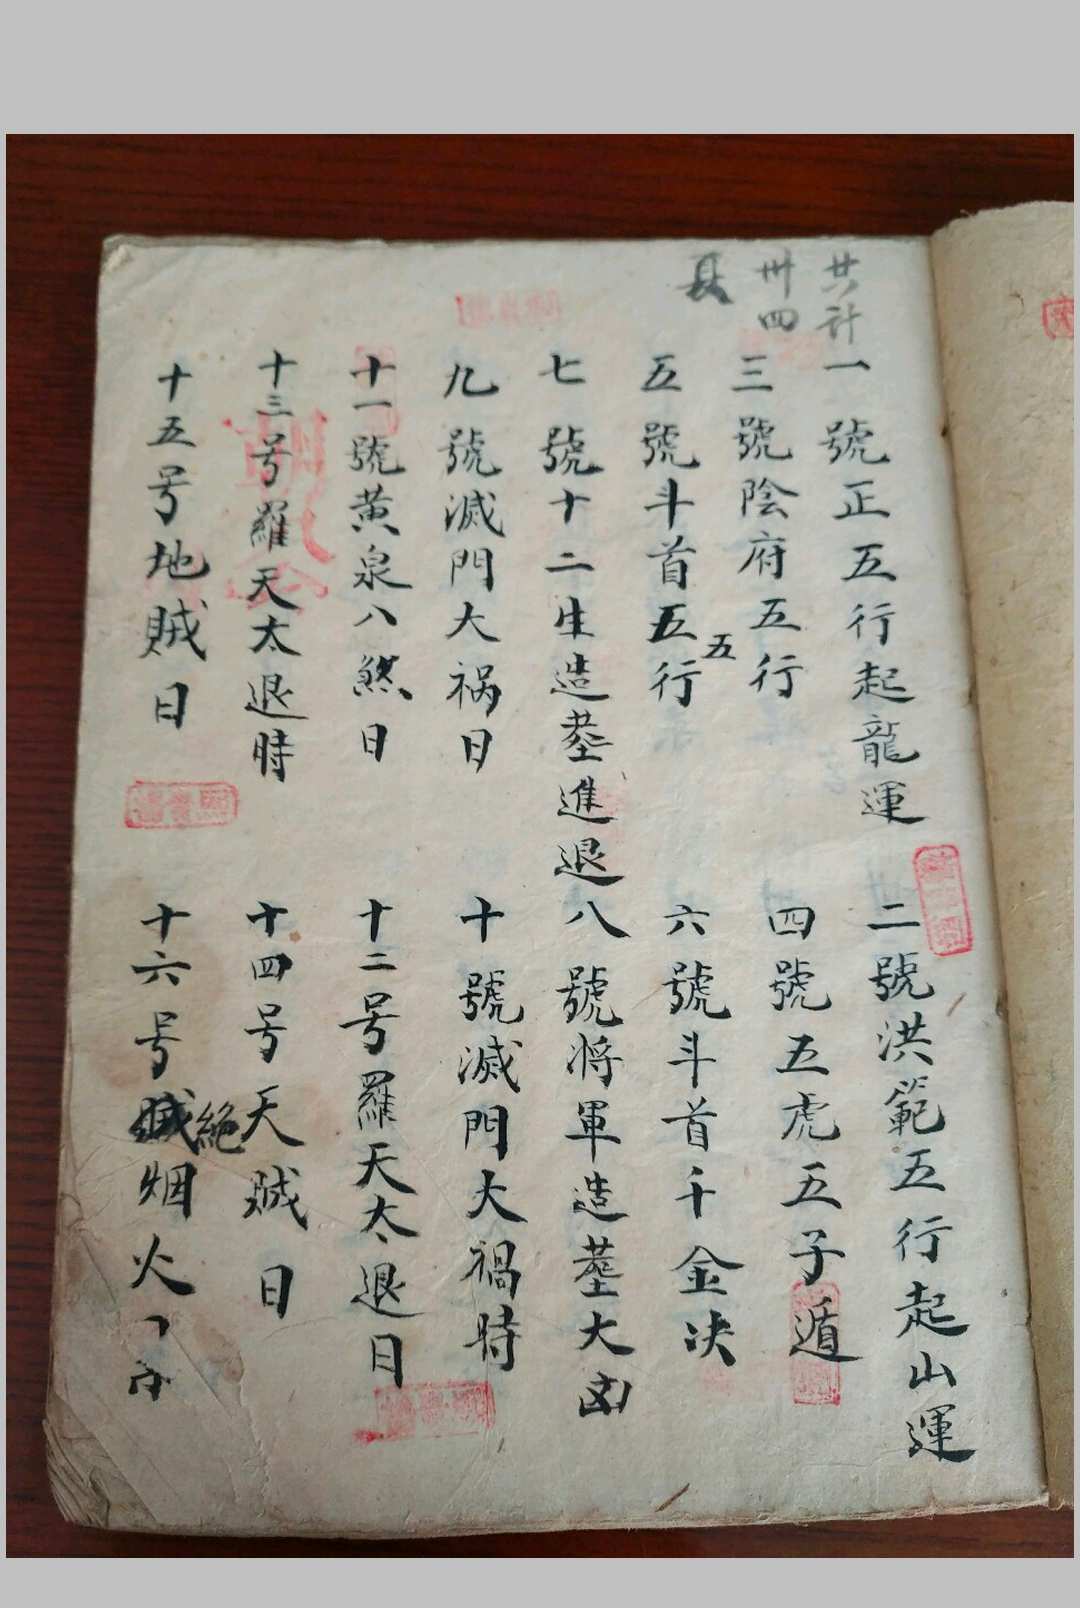 共計
卅四
頁
一號正五行起龍運
二號洪範五行起山運
三號陰府五行
四號五虎五子遁
五號斗首五行
五
六號斗首千金决
七號十二生造塟進退
八號將軍造塟大凶
九號滅門大祸日
十號滅門大禍時
十一號黄泉八煞日
十二号羅天太退日
十三号羅天太退時
十四号天賊日
十五号地賊日
十六号絶烟火